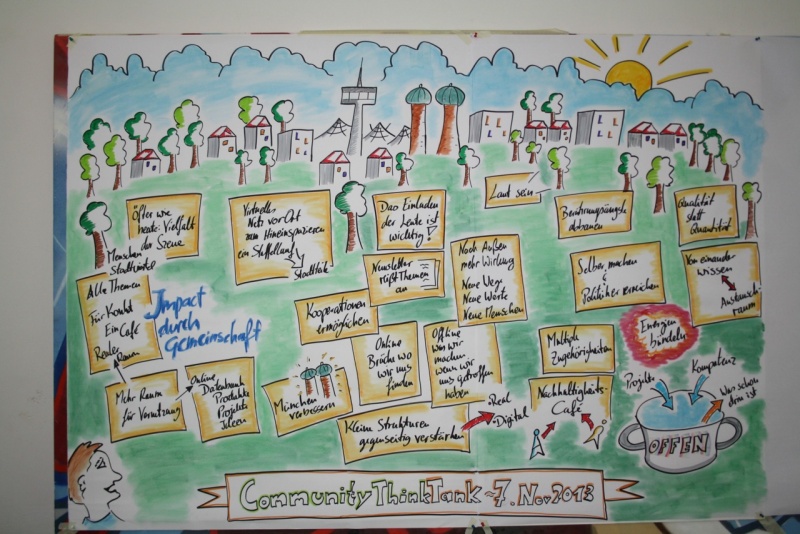 Öfter wie
heute: Vielfalt
der Szene
Virtuelles
Netz vor Ort
zum Hineinspazieren
ein Staffellauf
Stadtteile
Das Einladen
der Leute ist
wichtig!
Laut sein
Berührungsängste
abbauen
Qualität
statt
Quantität
Menschen
Stadtviertel
Alle Themen
Für Kontakt
Ein Café
Realer
Raum
Impact
durch
Gemeinschaft
Kooperationen
ermöglichen
Newsletter
Themen
an
Nach Außen
mehr Wirkung
Neue Wege
Neue Worte
Neue Menschen
Selber machen
&
Politiker erreichen
Von einander
wissen
Austausch-
raum
Energien
bündeln
Mehr Raum
für Vernetzung
Online
Datenbank
Produkte
Projekte
Ideen
München
verbessern
Online
Brücke wo
wir uns
finden
Offline
was wir
machen
wenn wir
uns getroffen
haben
Multiple
Zugehörigkeiten
Kleine Strukturen
gegenseitig verstärken
Real
Digital
Nachhaltigkeits-
Café
Projekte
Kompetenz
Was schon
drin ist
OFFEN
Community ThinkTank ~ 7. Nov 2013